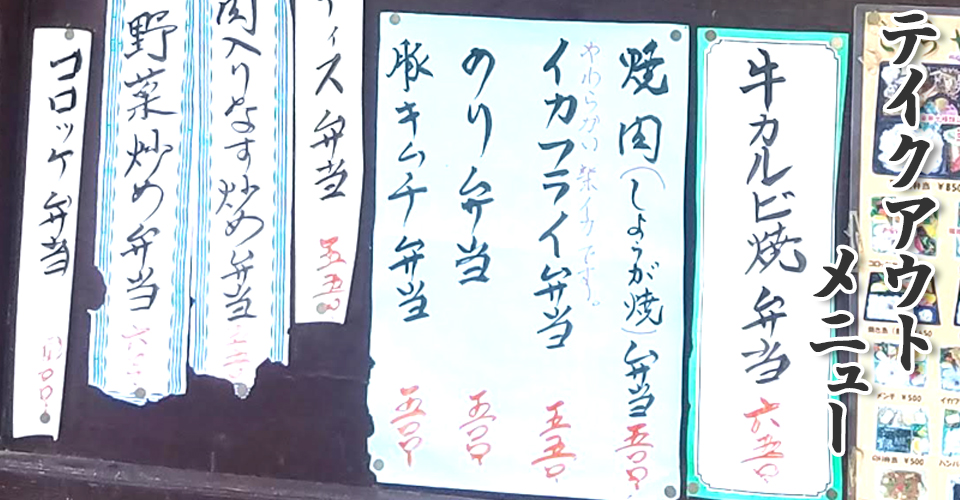 テイクアウト
メニュー
牛カルビ焼弁当 六五〇
焼肉(しょうが焼)弁当 五〇〇
やわらかい紫イカです。
イカフライ弁当 五五〇
のり弁当 五〇〇
豚キムチ弁当 五〇〇
弁当 五五〇
肉入りなす炒め弁当
野菜炒め弁当
コロッケ弁当 四〇〇
¥850
メンチ ¥500
¥500